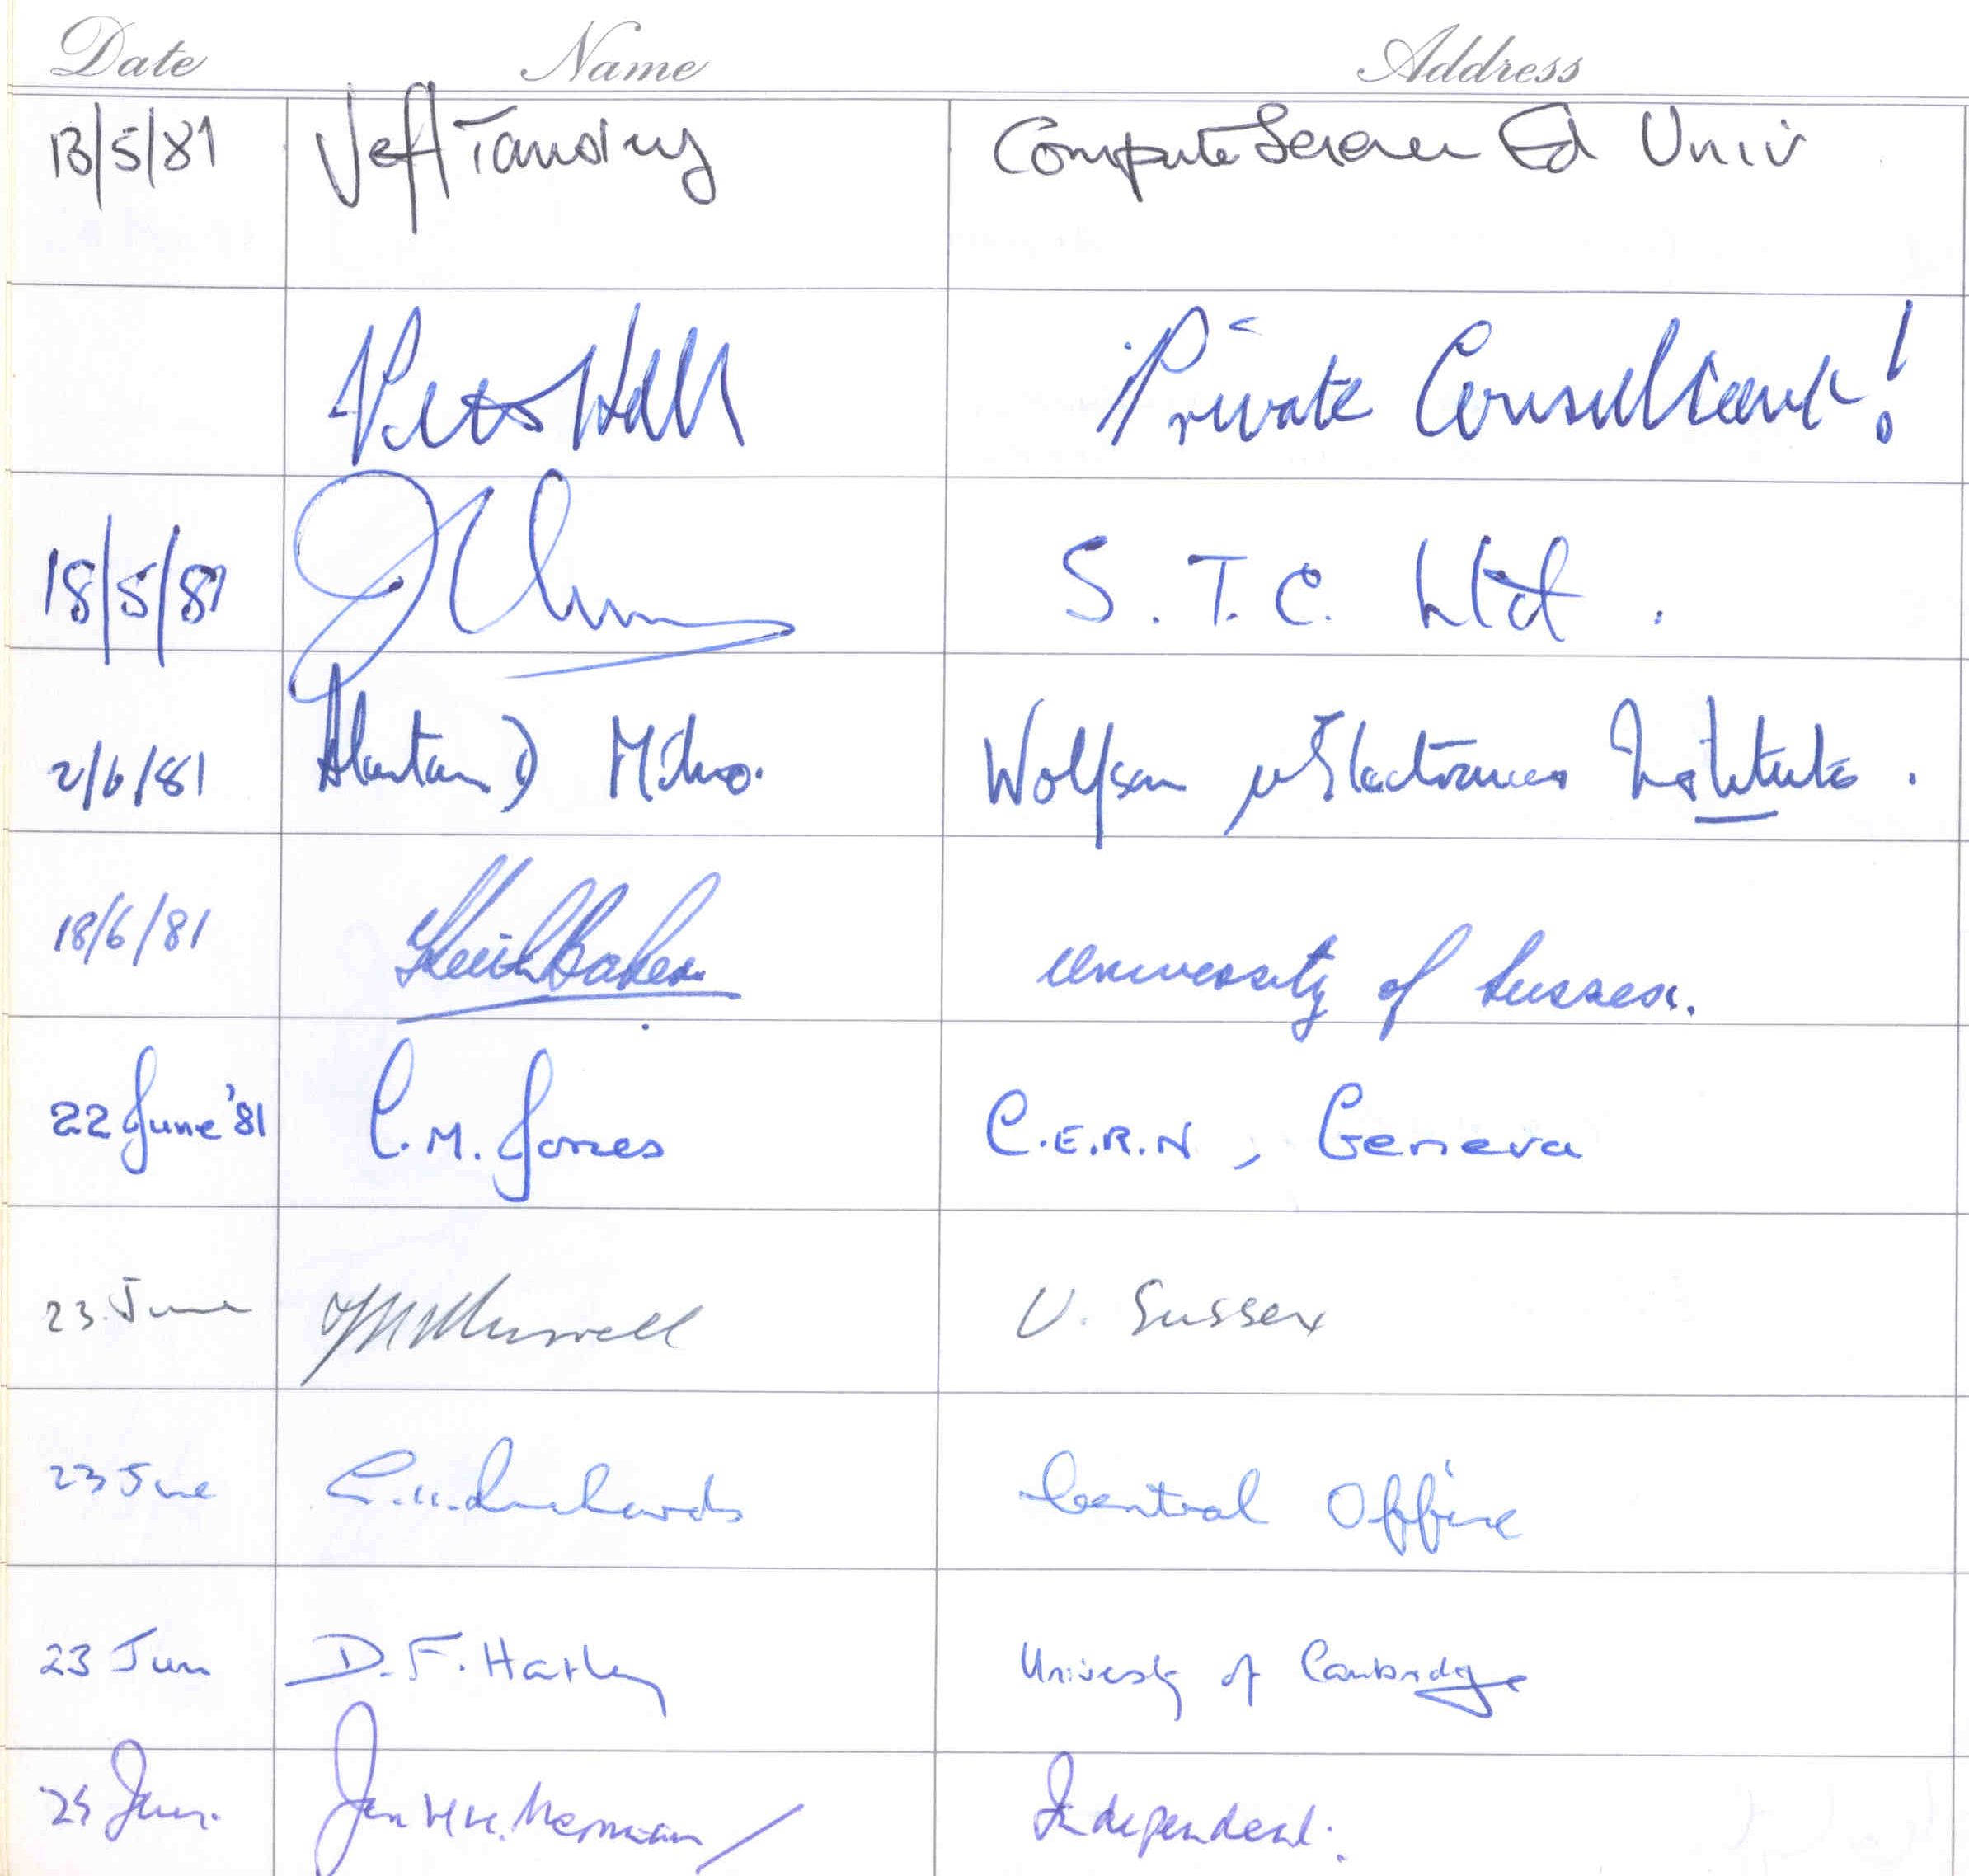 Date Name Address
13/5/81 Jeff Tansley Computer Science Ed Univ
Peter Hall Private Consultant!
18/5/81 S.T.C. Ltd.
2/6/81 Alastair D Milne. Wolfson μElectronics Institute.
18/6/81 Keith Baker University of Sussex.
22 June '81 C.M. Jones C.E.R.N, Geneva
23 June U. Sussex
23 June Richards Central Office
23 Jun D.F. Hartley University of Cambridge
Jun. Independent.